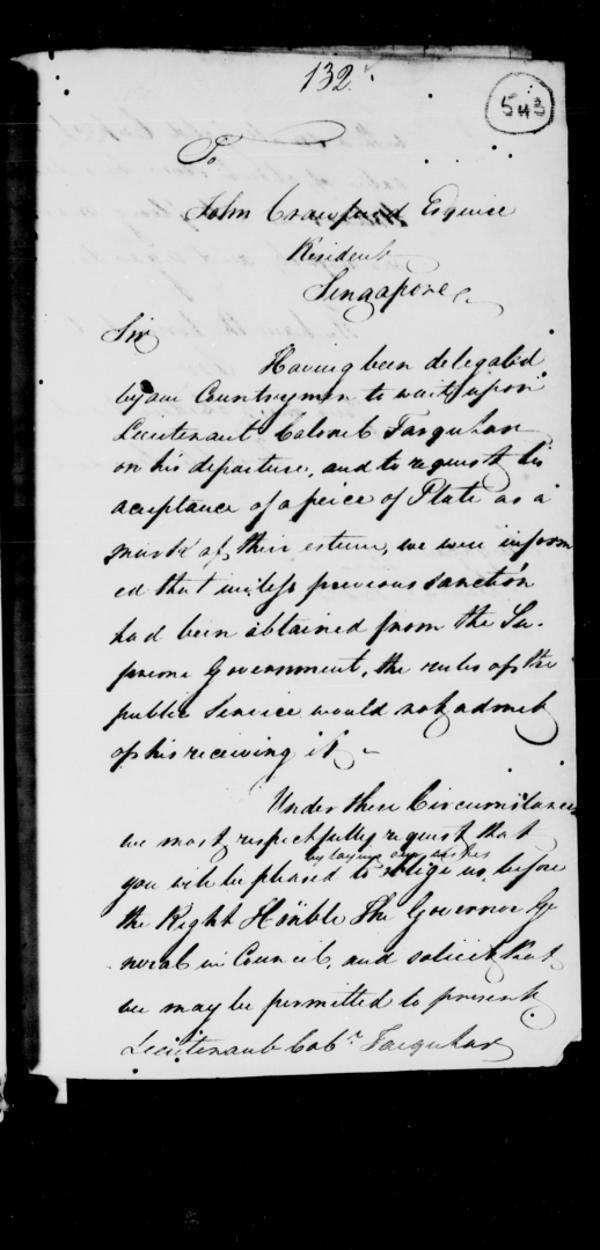 132.
543
To
John Crawfurd Esquire
Resident
Singapore
Sir
Having been delegated
by our Countrymen to wait upon
Lieutenant Colonel Farquhar
on his departure, and to request his
acceptance of a peice of Plate as a
mark of their esteem, we were inform
ed that unless previous sanction
had been obtained from the Su-
preme Government, the rules of the
public Service would not admit
of his receiving it
Under these Circumstances
we most respectfully request that
by laying our wishes
you will be pleased to oblige us, before
the Right Honble The Governor Ge
neral in Council, and solicit that
we may be permitted to present
Lieutenant Col.r Farquhar